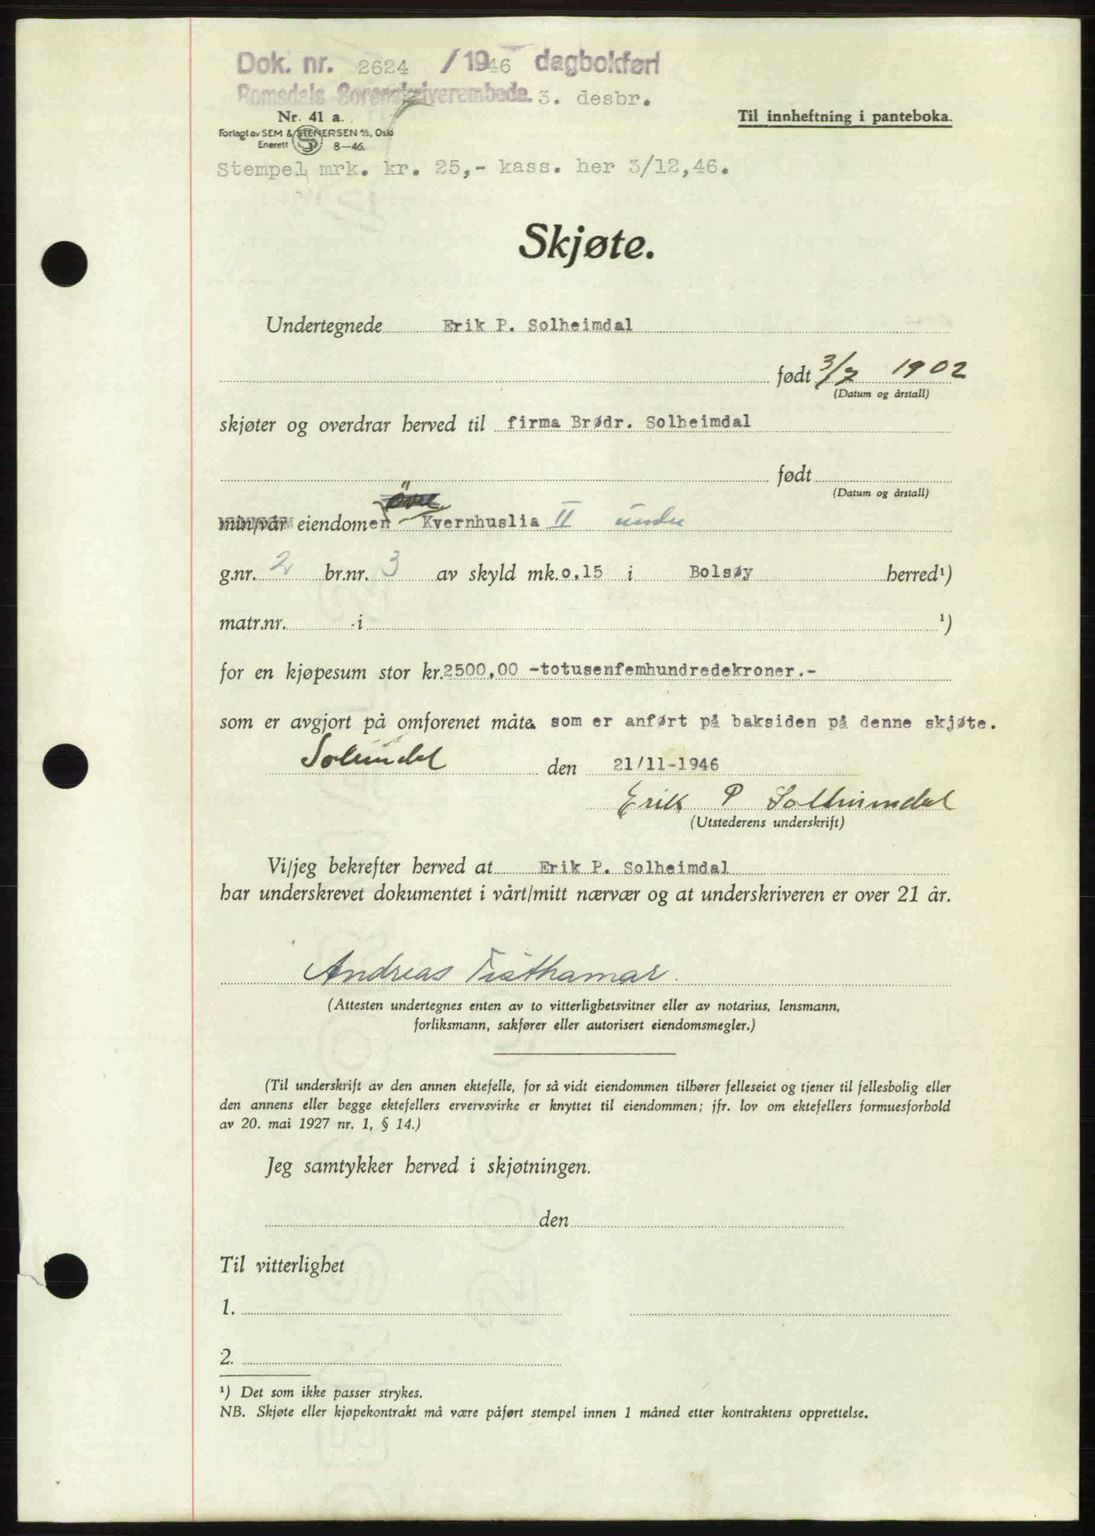 Dok. nr. 2624 /1946 dagbokført
Romsdals Sorenskriverembede. 3. desbr.
Nr. 41 a.
Til innheftning i panteboka.
Forlagt av SEM & STENERSEN A/S, Oslo
Enerett 8—46.
Stempel mrk. kr. 25,- kass. her 3/12,46.
Skjøte.
Undertegnede Erik P. Solheimdal
født 3/7 1902
(Datum og årstall)
skjøter og overdrar herved til firma Brødr. Solheimdal
født
(Datum og årstall)
min/vår eiendomen Kvernhuslia II
g.nr. 2 br.nr. 3 av skyld mk. 0,15 i Bolsøy herred¹)
matr.nr. i ¹)
for en kjøpesum stor kr. 2500,00 -totusenfemhundredekroner.-
som er avgjort på omforenet måte som er anført på baksiden på denne skjøte.
den 21/11-1946
Erik P Solheimdal
(Utstederens underskrift)
Vi/jeg bekrefter herved at Erik P. Solheimdal
har underskrevet dokumentet i vårt/mitt nærvær og at underskriveren er over 21 år.
Andreas
(Attesten undertegnes enten av to vitterlighetsvitner eller av notarius, lensmann,
forliksmann, sakfører eller autorisert eiendomsmegler.)
(Til underskrift av den annen ektefelle, for så vidt eiendommen tilhører felleseiet og tjener til fellesbolig eller
den annens eller begge ektefellers ervervsvirke er knyttet til eiendommen; jfr. lov om ektefellers formuesforhold
av 20. mai 1927 nr. 1, § 14.)
Jeg samtykker herved i skjøtningen.
den
Til vitterlighet
1.
2.
¹) Det som ikke passer strykes.
NB. Skjøte eller kjøpekontrakt må være påført stempel innen 1 måned etter kontraktens opprettelse.